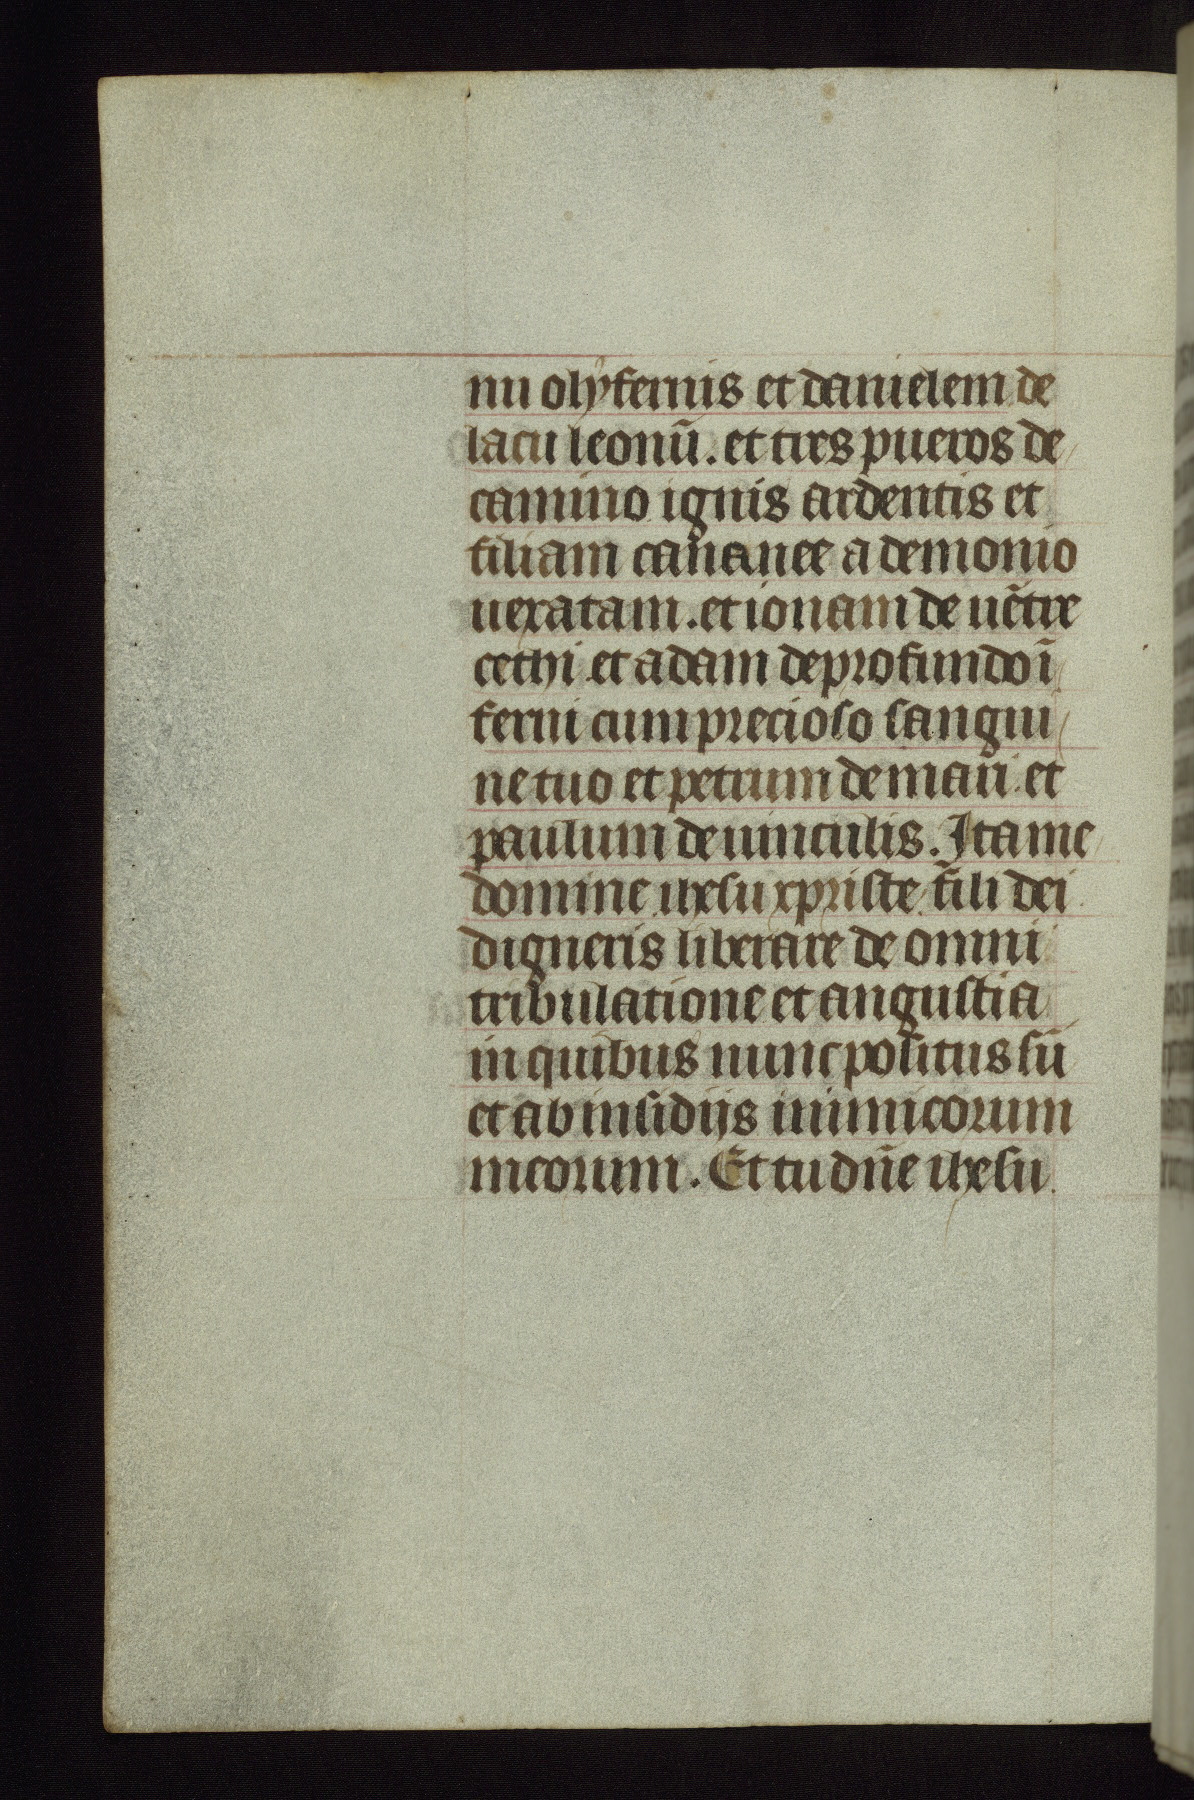 nu olyfernis et danielem de
lacu leonū. et tres pueros de
camino ignis ardentis et
filiam cananee a demonio
uexatam. et ionam de uētre
cethi et adam de profundo ī
ferni cum precioso sangui
ne tuo et petrum de mari et
paulum de uinculis. Ita me
domine ihesu xpriste fili dei
digneris liberare de omni
tribulatione et angustia
in quibus nunc positus sū
et ab insidijs inimicorum
meorum. Et tu dn̄e ihesu